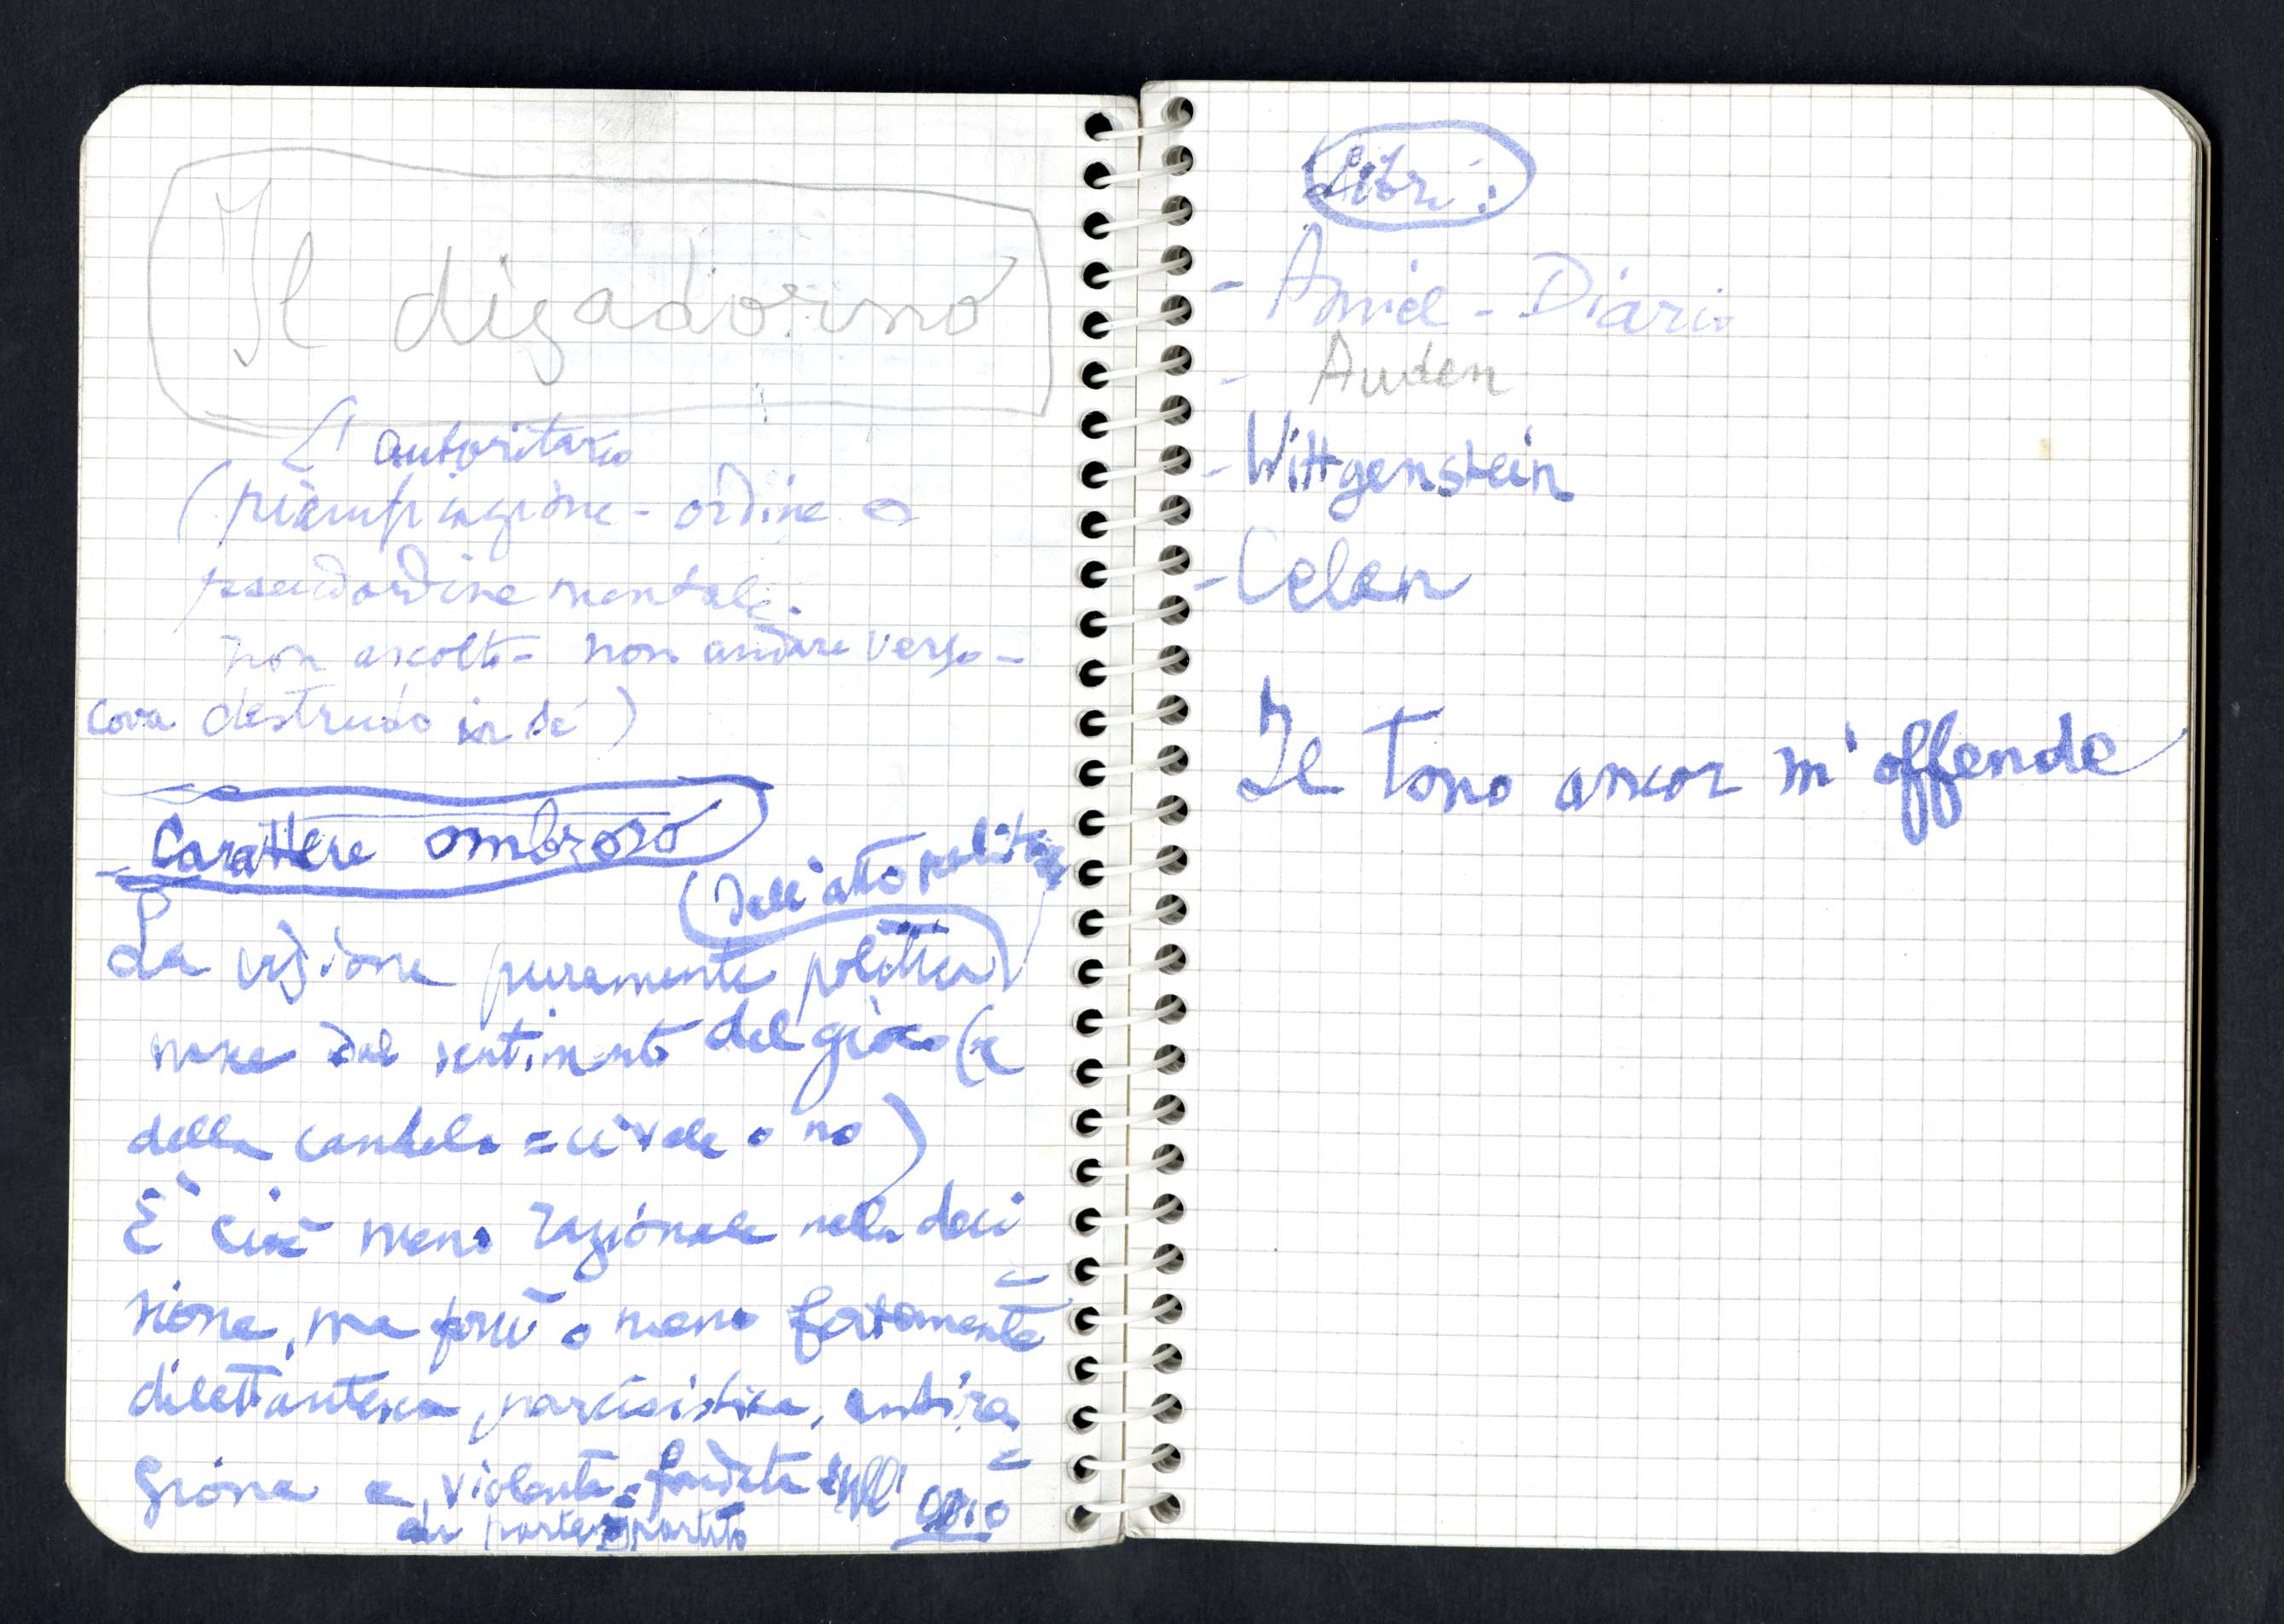 Il disadorno
L'autoritario
(riempizione - ordine o
pseudordine mentale.
non ascolto - non andare verso -
cova destrudo in sé)
- Carattere ombroso
(dell'atto politico)
La visione puramente politica
nasce dal sentimento del gioco (e
della candela = ci vale o no)
E' cioè meno razionale nella deci
sione, ma più o meno fortemente
dilettantesca, narcisistica,
e violenta - fondata sull' odio
di parte partito
Libri:
- Amiel - Diario
- Auden
- Wittgenstein
- Celan
Il Tono ancor m'offende